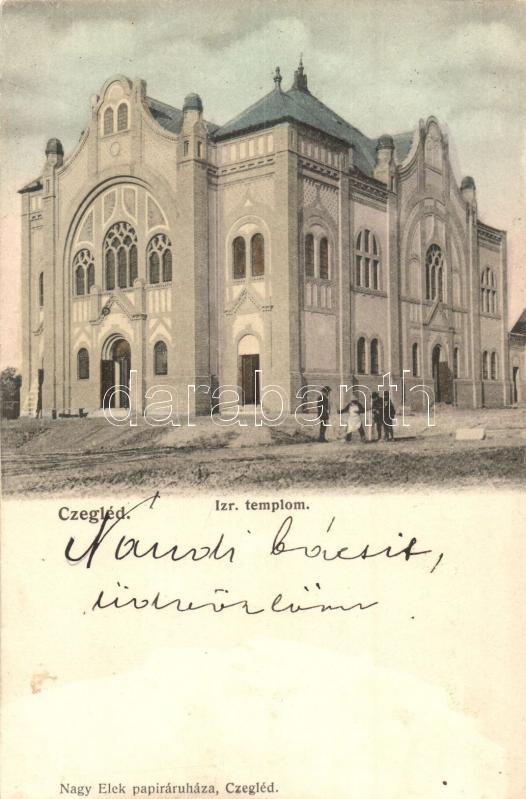 darabanth.com
Czegléd.
Izr. templom.
Nándi bácsit,
üdvözlöm
Nagy Elek papiráruháza, Czegléd.